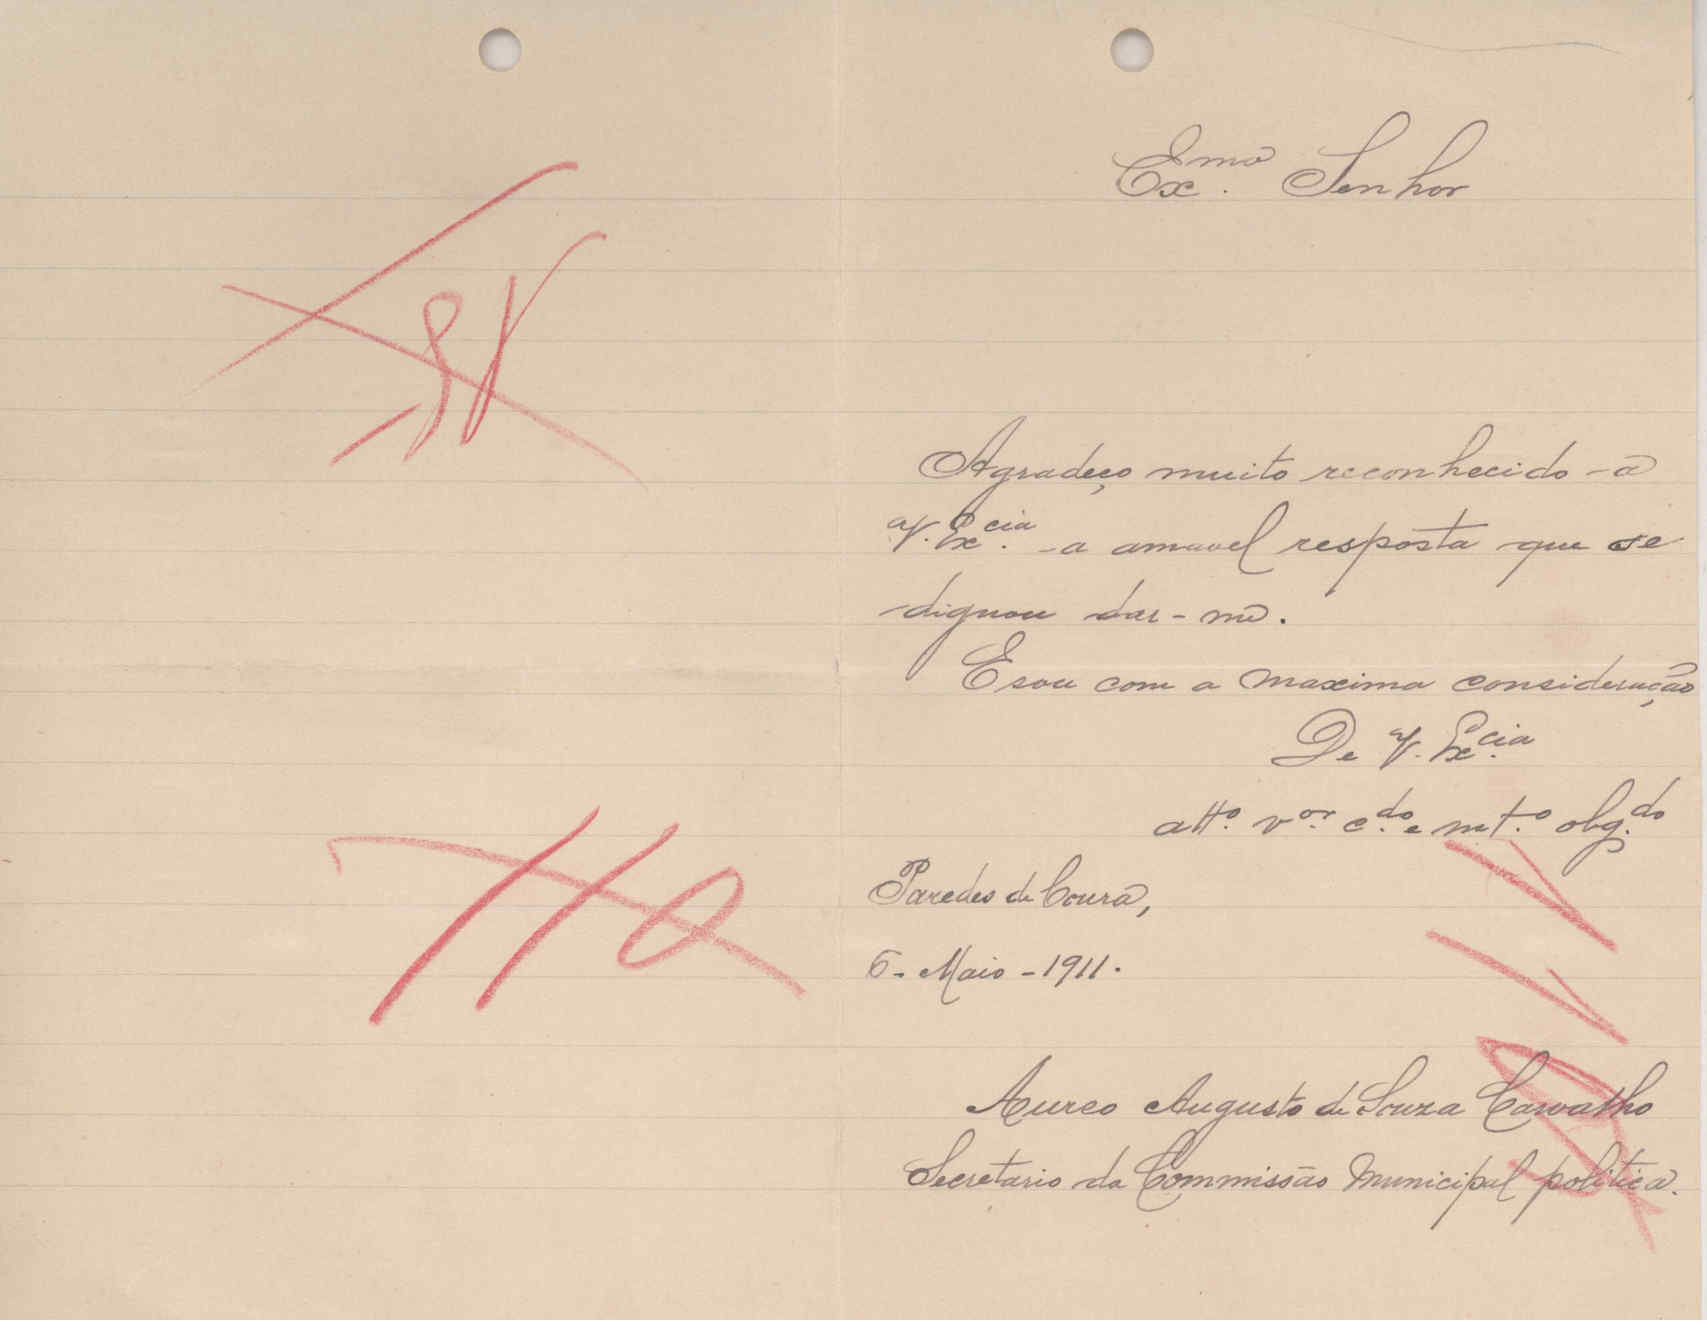 Exmo. Senhor
Agradeço muito reconhecido a
V. Excia. a amavel resposta que se
dignou dar-me.
E sou com a maxima consideração
De V. Excia.
atto. vor. cdo. e mt.o obg.do
Paredes de Coura,
6 - Maio - 1911.
Aureo Augusto de Souza Carvalho
Secretario da Commissão Municipal politica.